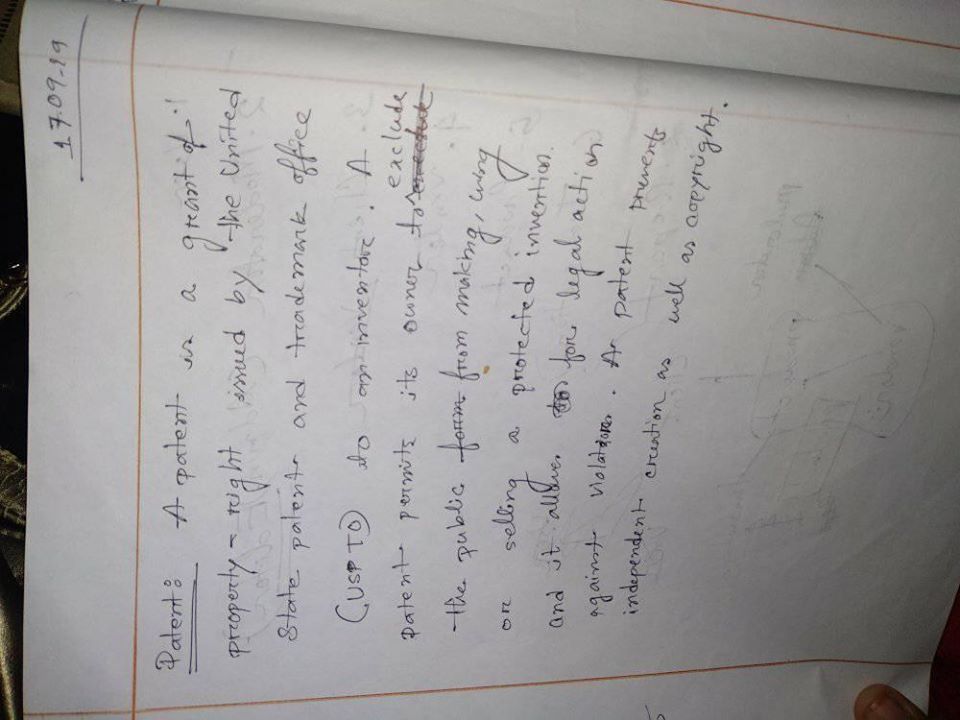 17.09.19
Patent: A patent is a grant of
property-right issued by the United
State patent and trademark office
(USPTO) to an inventor. A
patent permits its owner to exclude
the public form from making, using
or selling a protected invention.
and it allows for legal action
against violators. A patent prevents
independent creation as well as copyright.